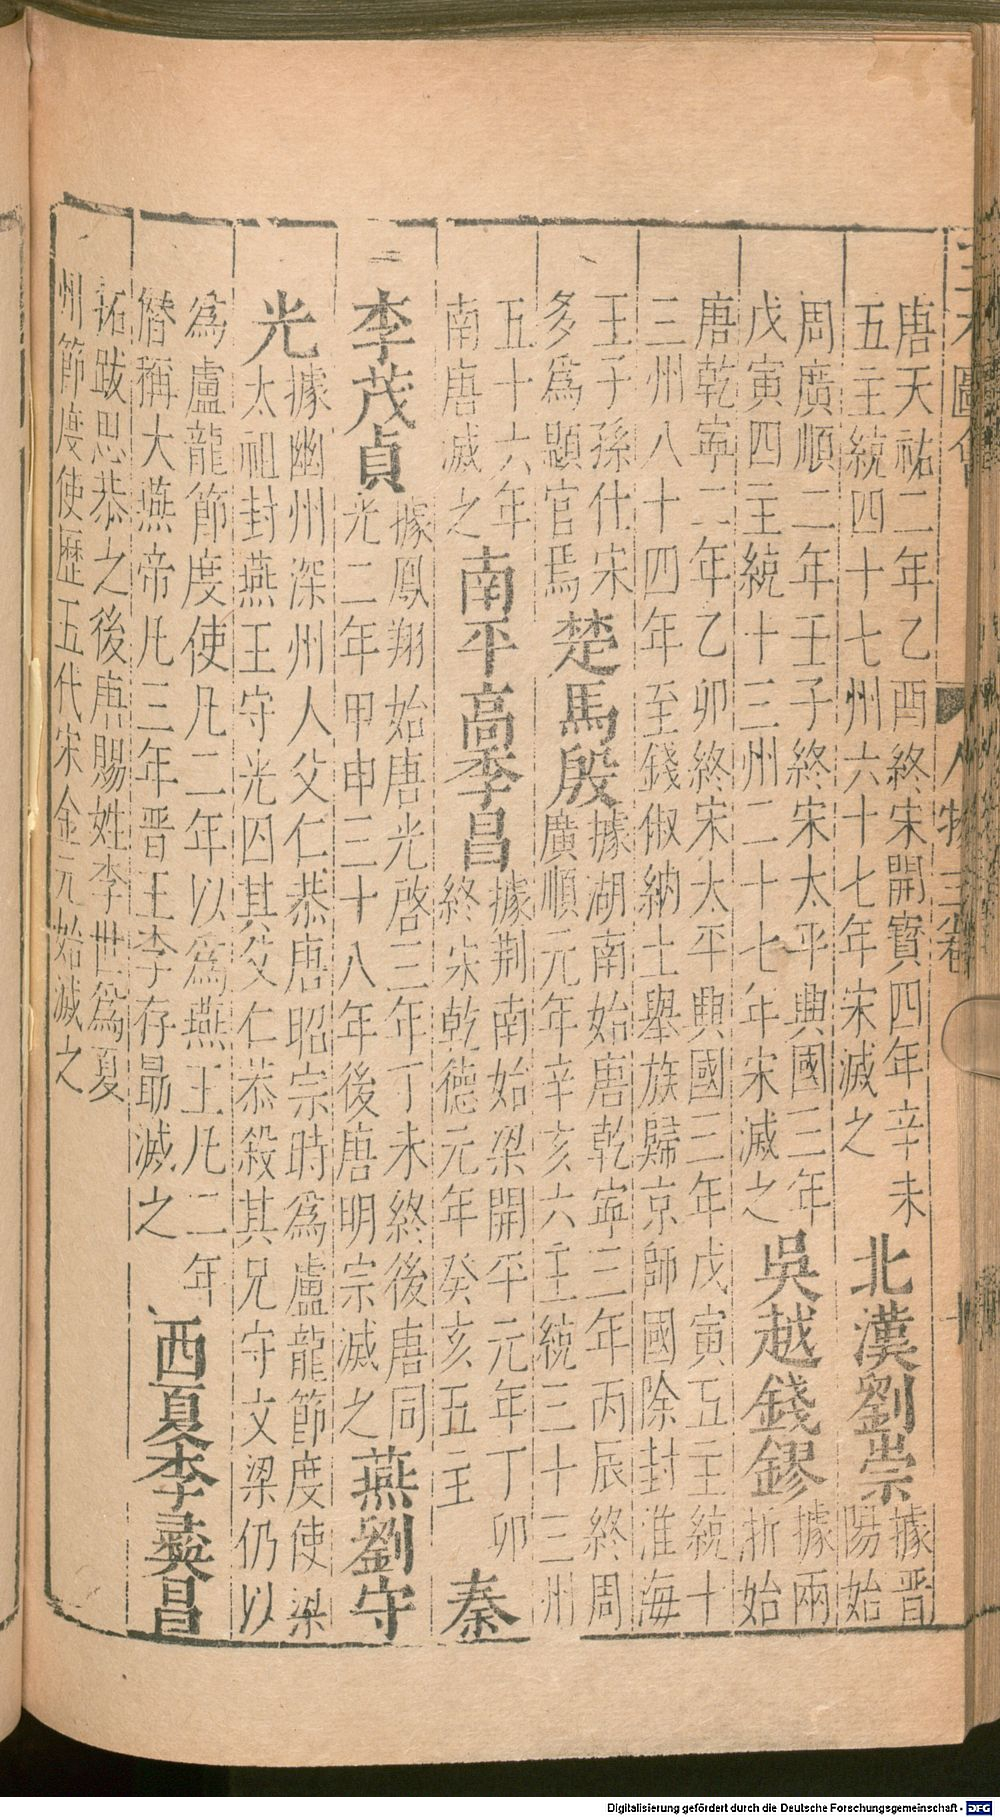 唐天祐二年乙酉終宋開寳四年辛未
五主統四十七州六十七年宋滅之
北漢劉崇
據晋
陽始
周廣順二年壬子終宋太平興國三年
戊寅四主統十三州二十七年宋滅之
吳越錢鏐
據兩
浙始
唐乾寧二年乙卯終宋太平興國三年戊寅五主統十
三州八十四年至錢俶納土舉族歸京師國除封淮海
王子孫仕宋
多為顯官焉
楚馬殷
據湖南始唐乾寧三年丙辰終周
廣順元年辛亥六主統三十三州
五十六年
南唐滅之
南平高季昌
據荆南始梁開平元年丁卯
終宋乾德元年癸亥五主
秦
李茂貞
據鳳翔始唐光啓三年丁未終後唐同
光二年甲申三十八年後唐明宗滅之
燕劉守
光
據幽州深州人父仁恭唐昭宗時為盧龍節度使梁
太祖封燕王守光囚其父仁恭殺其兄守文梁仍以
為盧龍節度使凡二年以為燕王凡二年
僭稱大燕帝凡三年晋王李存勗滅之
西夏李彞昌
拓跋思恭之後唐賜姓李世為夏
州節度使歷五代宋金元始滅之
人物三卷
Digitalisierung gefördert durch die Deutsche Forschungsgemeinschaft - DFG